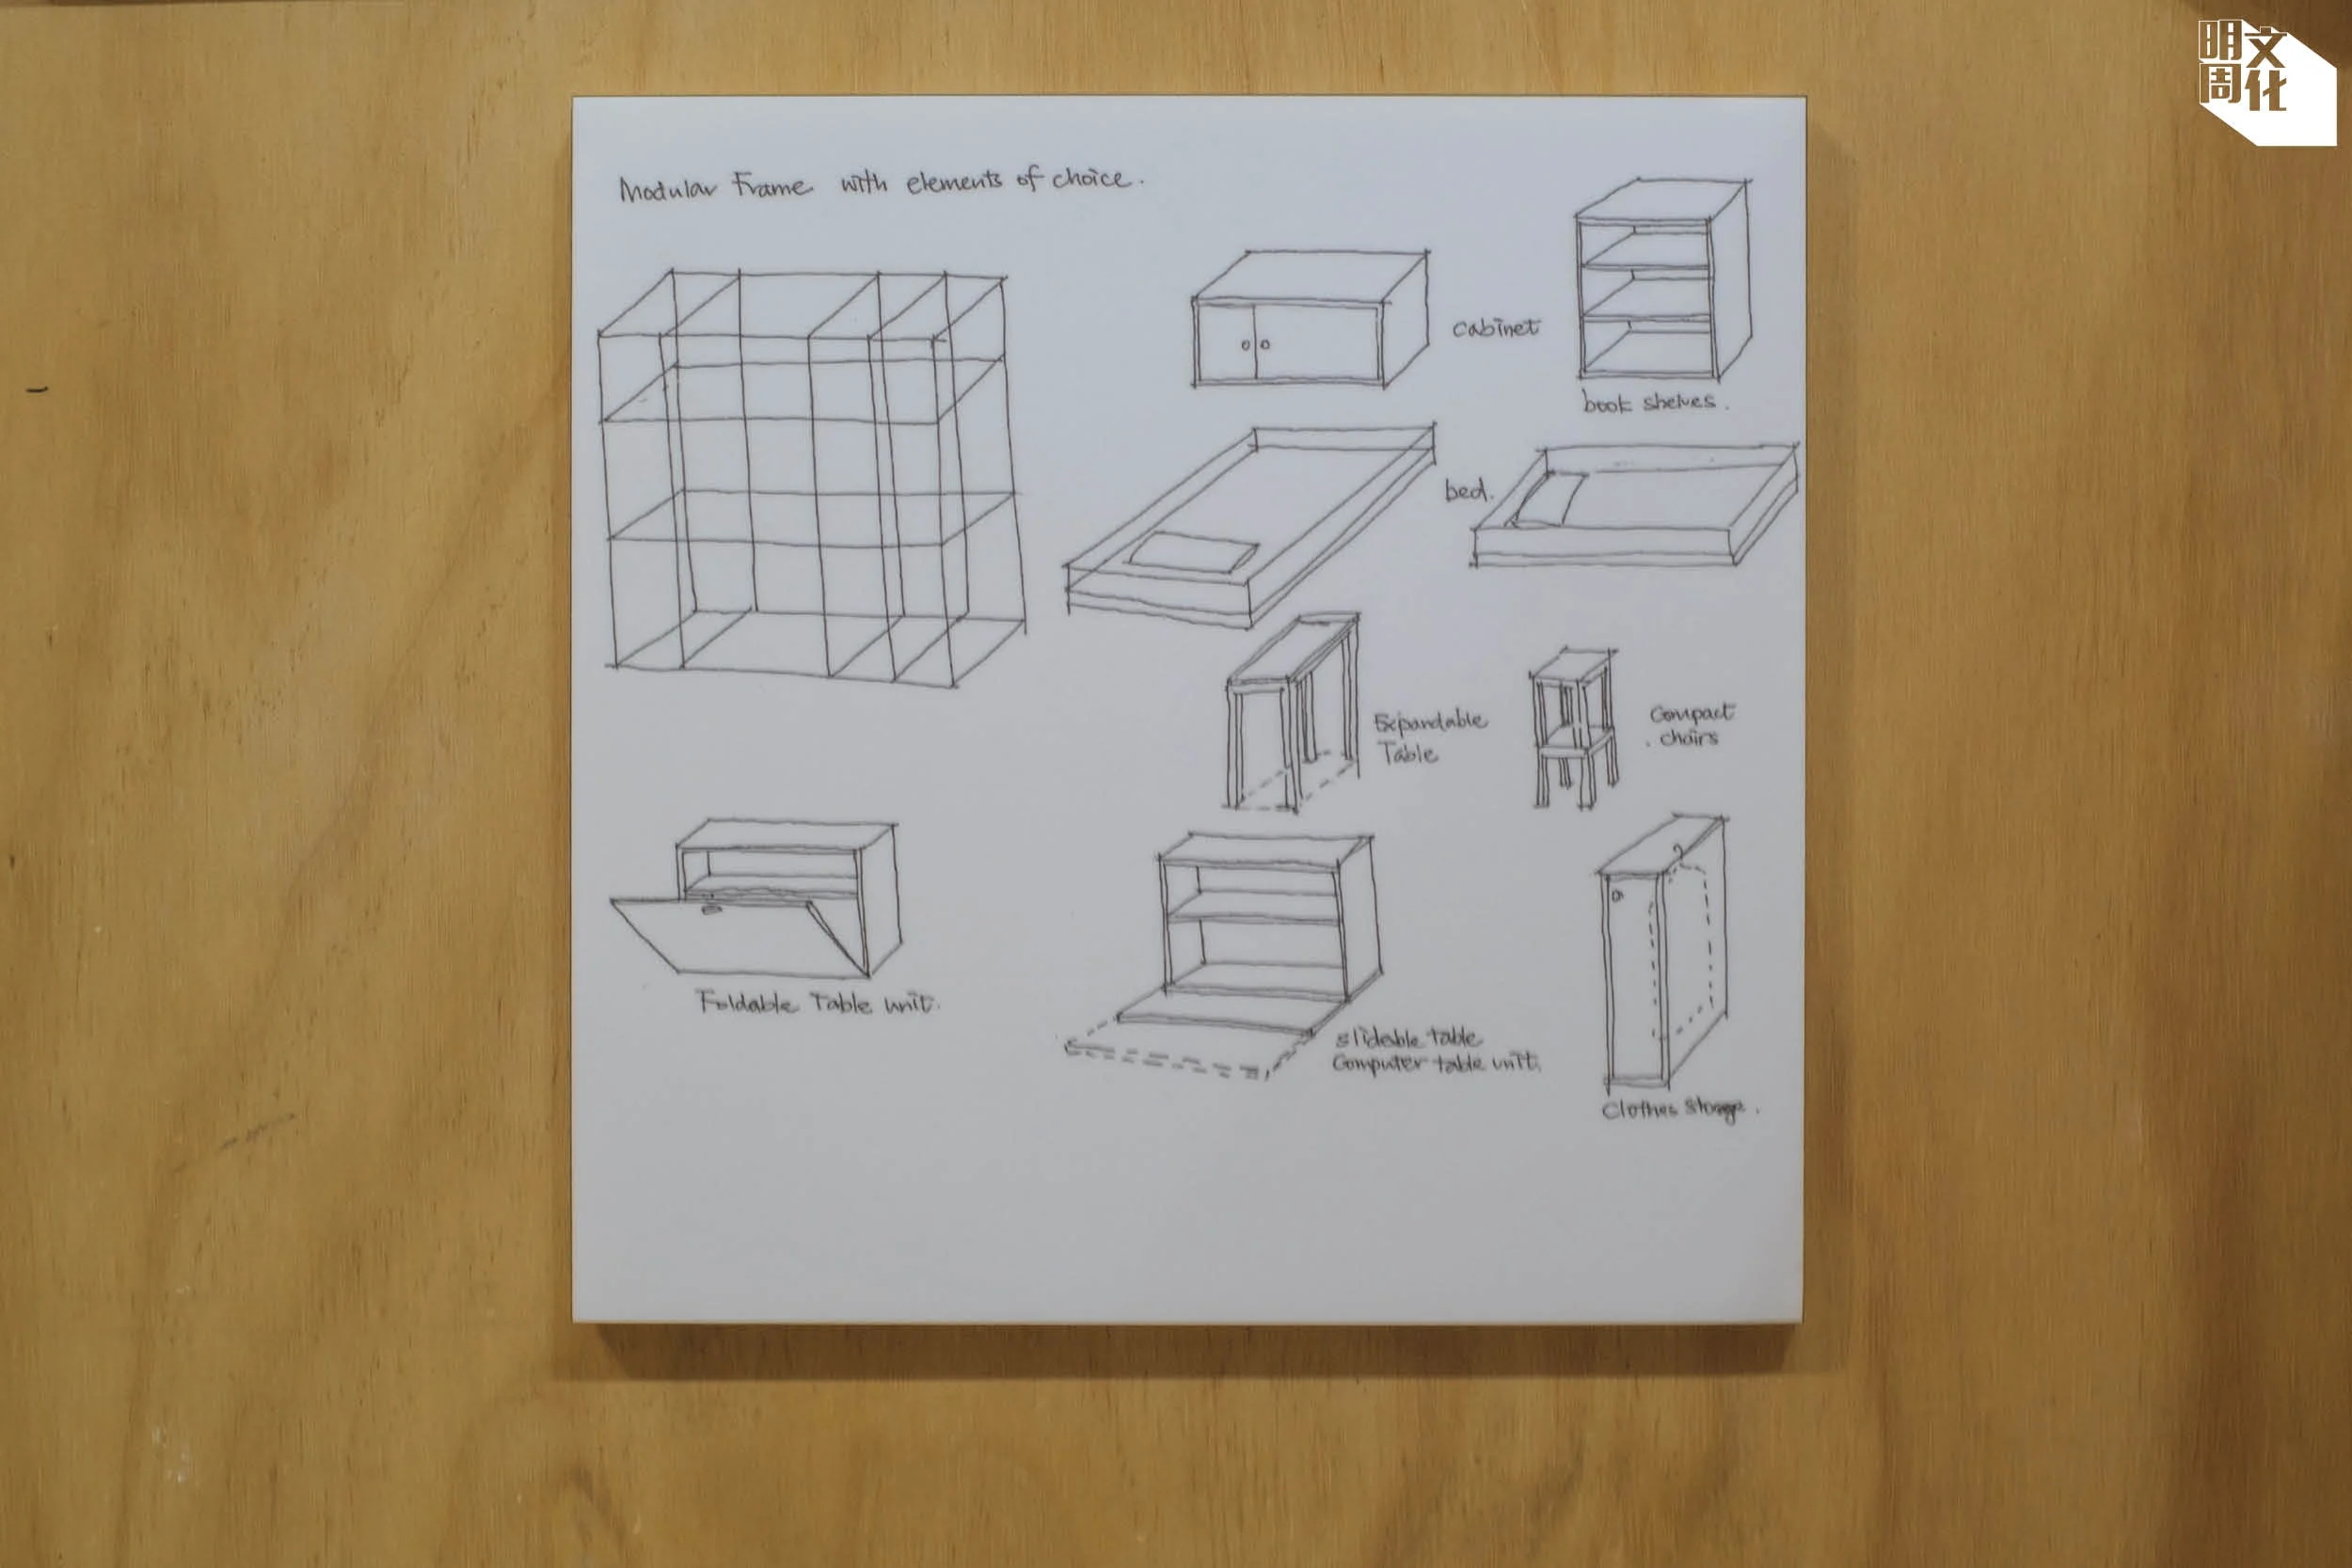 明周
文化
Modular Frame with elements of choice.
cabinet
book shelves.
bed.
Expandable
Table
Compact
chairs
Foldable Table unit.
slideable table
Computer table unit.
Clothes storage.